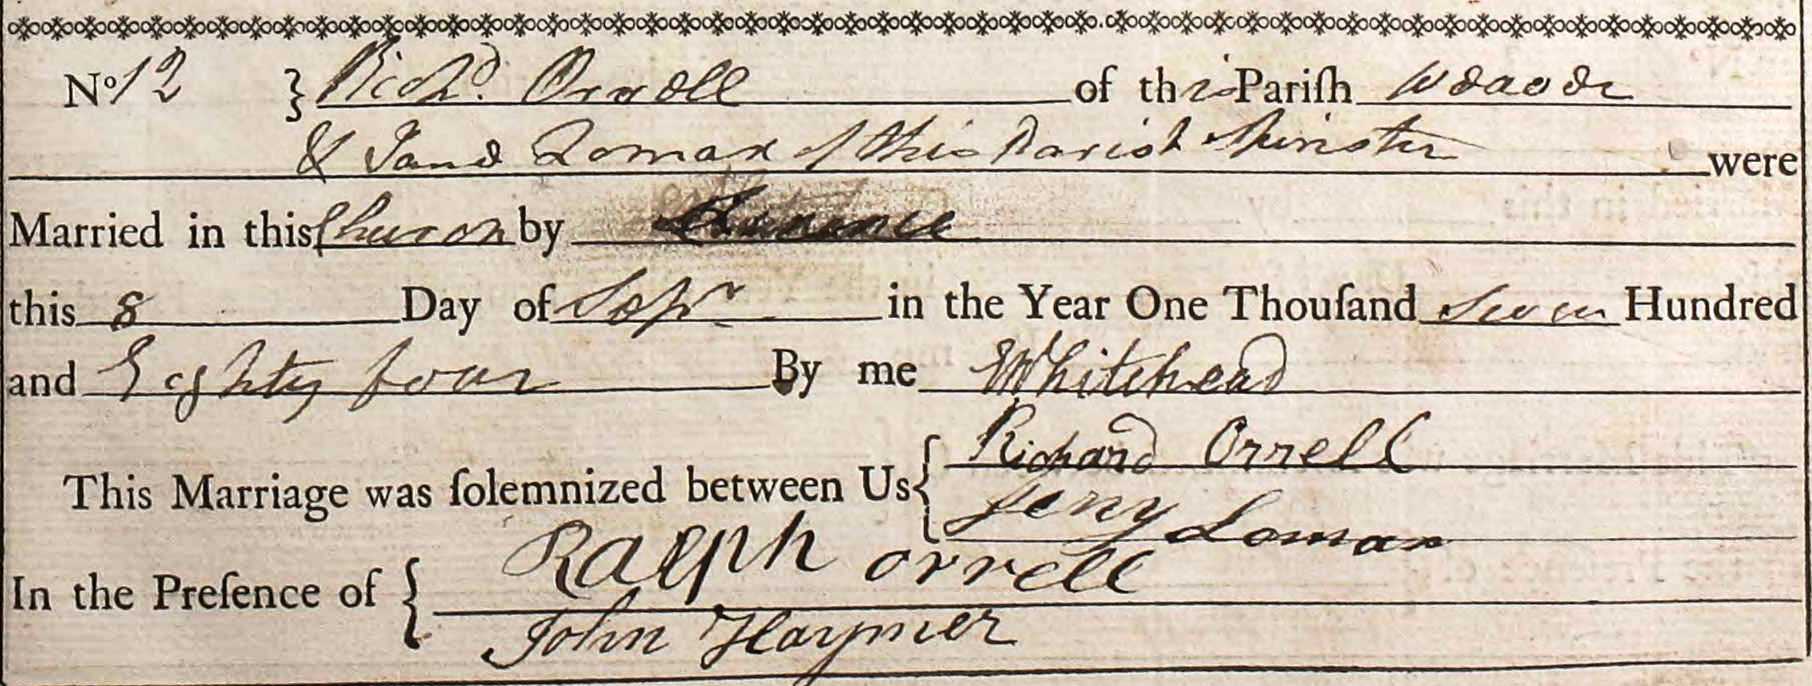 No 12 } Richd. Orrell of this Pariſh Weaver
& Jane Lomax of this Parish Spinster were
Married in this Church by Licence
this 8 Day of Sepr in the Year One Thouſand Seven Hundred
and Eighty four By me Whitehead
Richard Orrell
This Marriage was ſolemnized between Us {
Jeny Lomax
Ralph orrell
In the Preſence of {
John Haymer